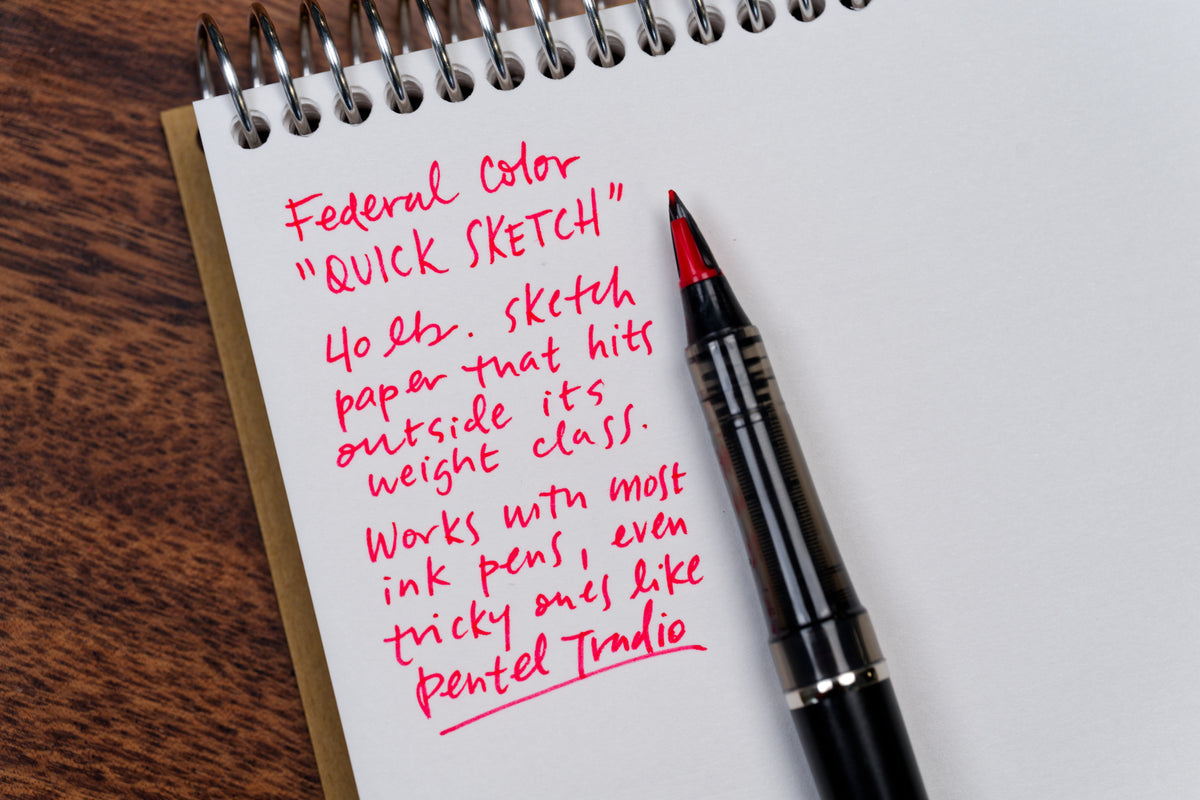 Federal Color
"QUICK SKETCH"
40 lb. sketch
paper that hits
outside its
weight class.
Works with most
ink pens, even
tricky ones like
Pentel Tradio